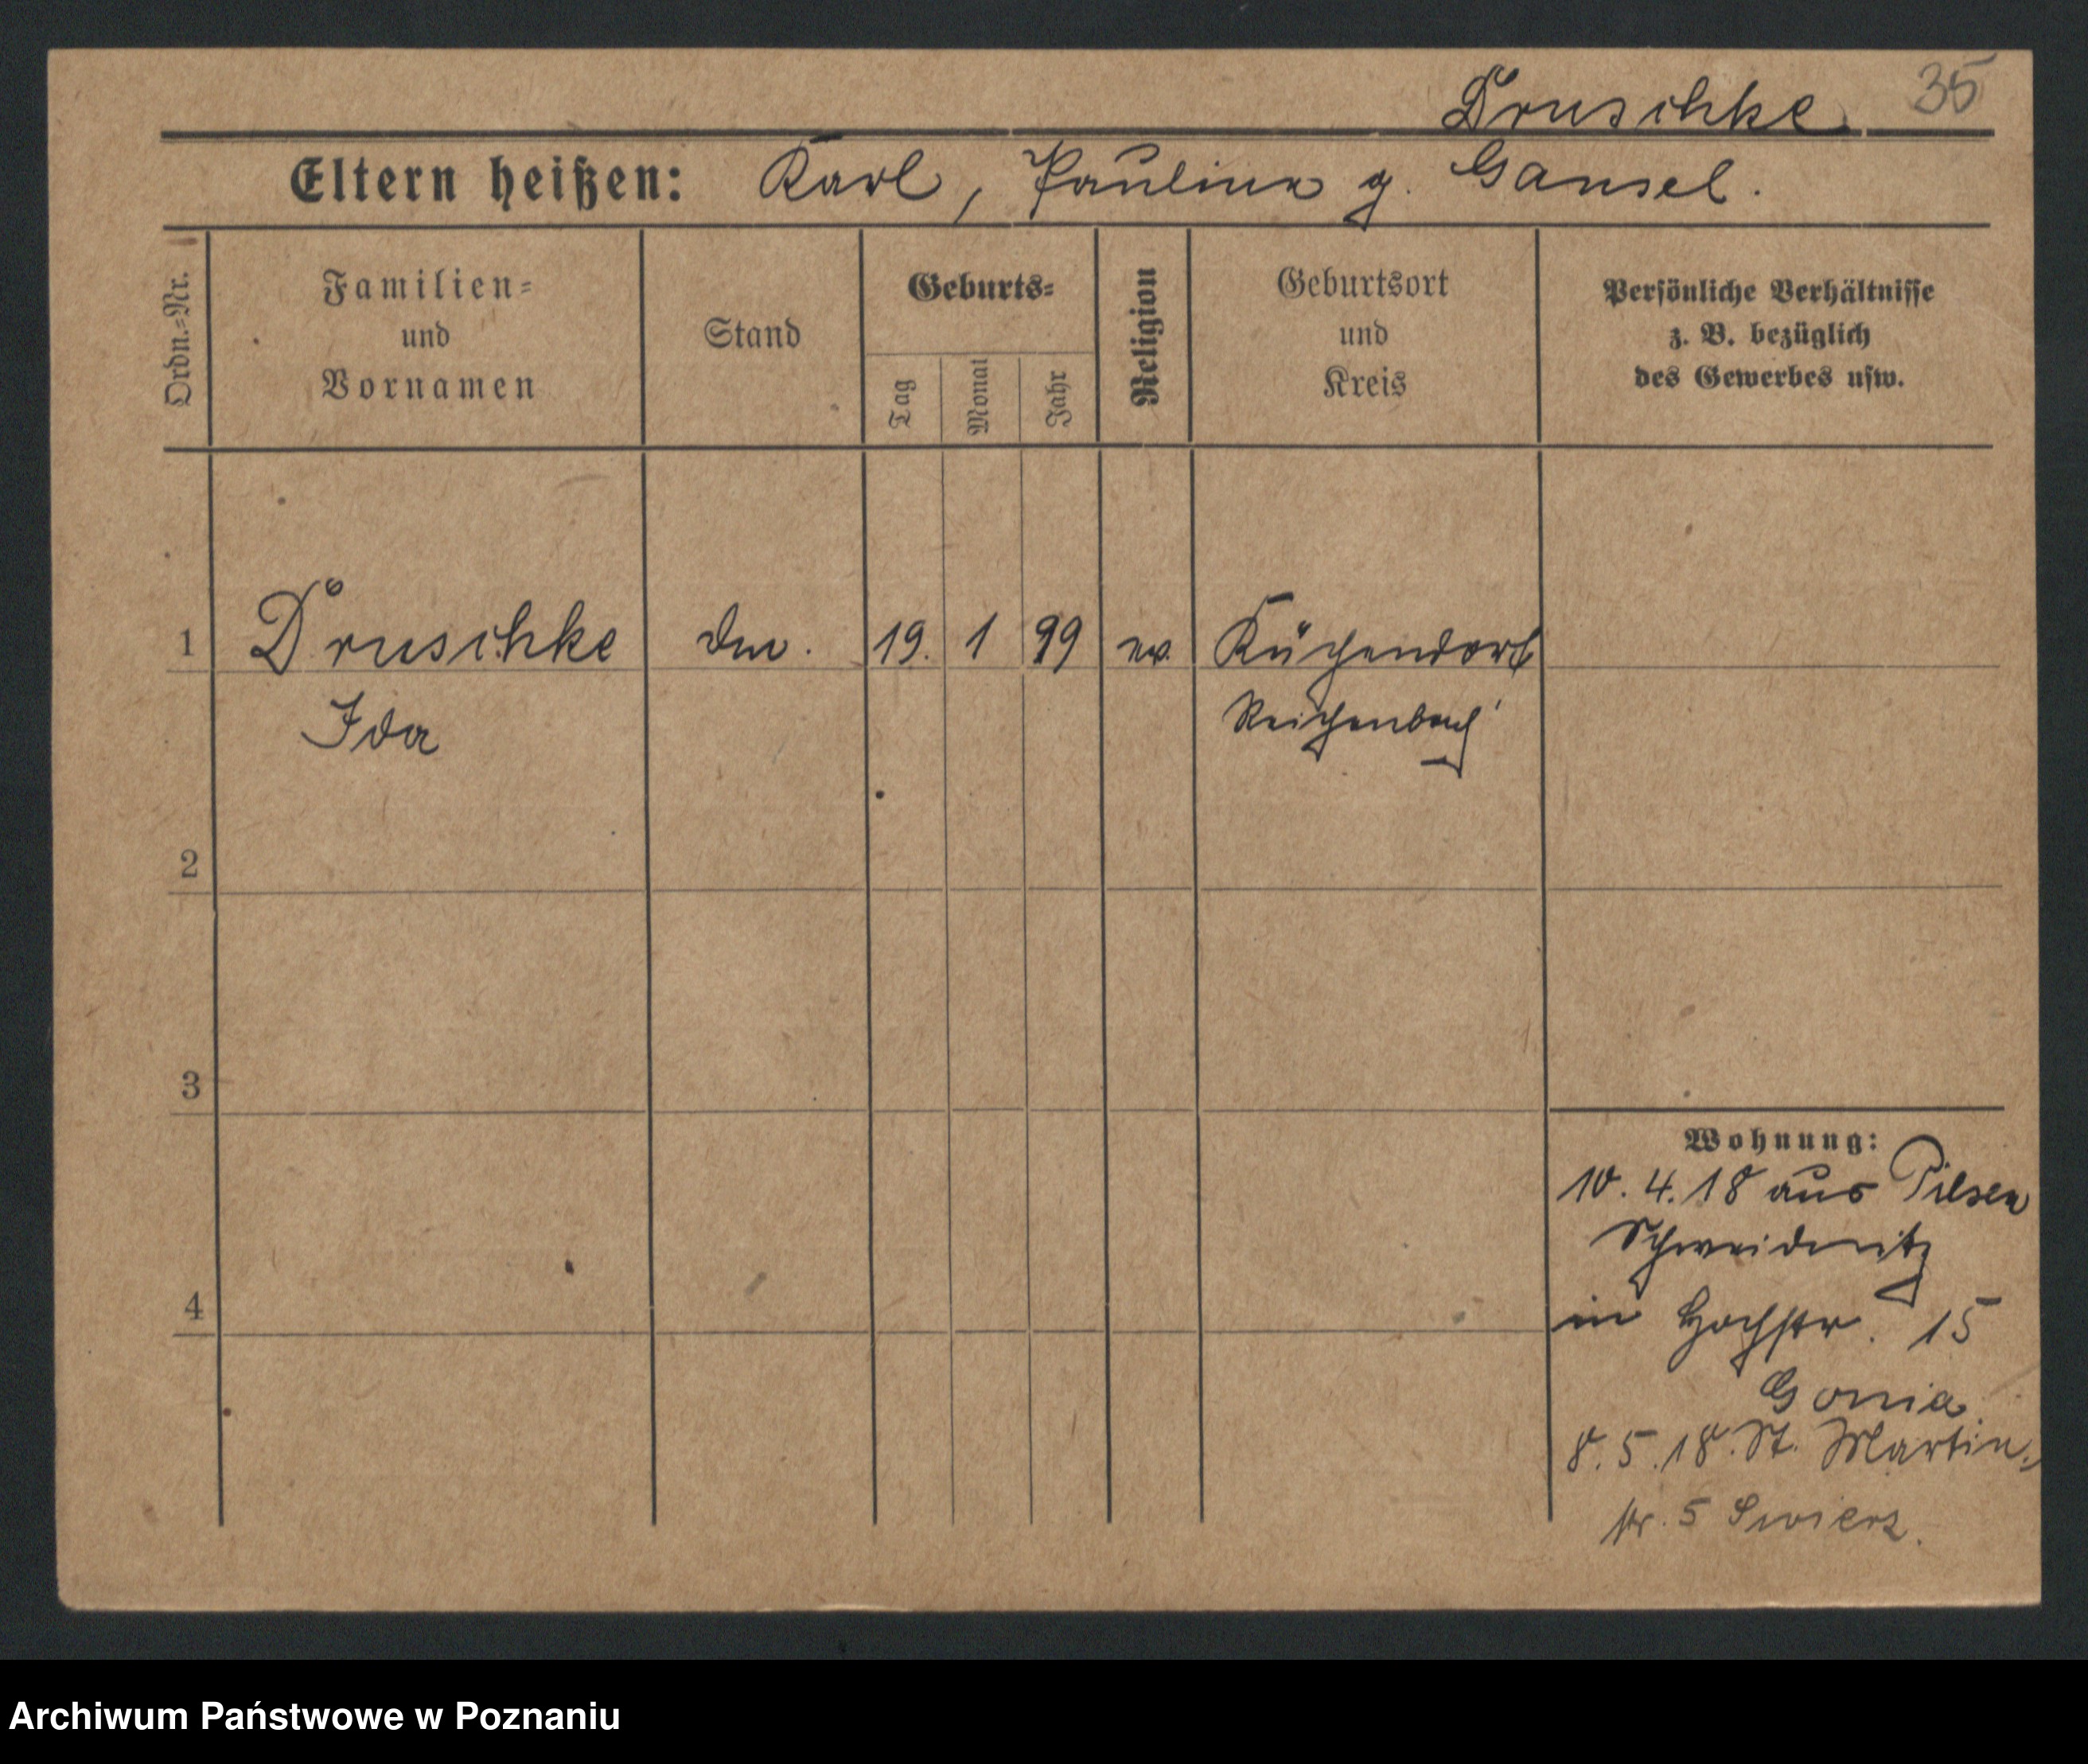 Druschke 35
Eltern heißen: Karl, Pauline g. Gansel.
Ordn.-Nr.
Familien-
und
Vornamen
Stand
Geburts-
Tag
Monat
Jahr
Religion
Geburtsort
und
Kreis
Persönliche Verhältnisse
z. B. bezüglich
des Gewerbes usw.
1 Druschke 19. 1 99 ev. Küchendorf
Ida Reichenbach
2
3
4
Wohnung:
10. 4. 18 aus Pilsen
Schweidnitz
in Hochstr. 15
Gonia.
8. 5. 18. St. Martin-
str. 5 Swierz.
Archiwum Państwowe w Poznaniu